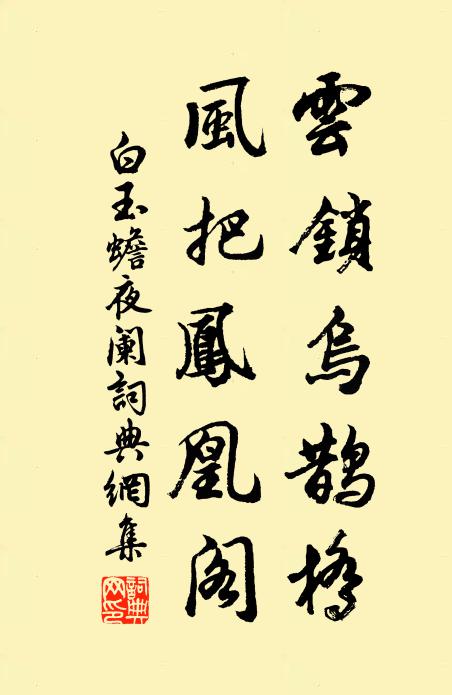 雲鎖烏鵲橋
風把鳳凰閣
白玉蟾夜闌詞典網集
詞典網印